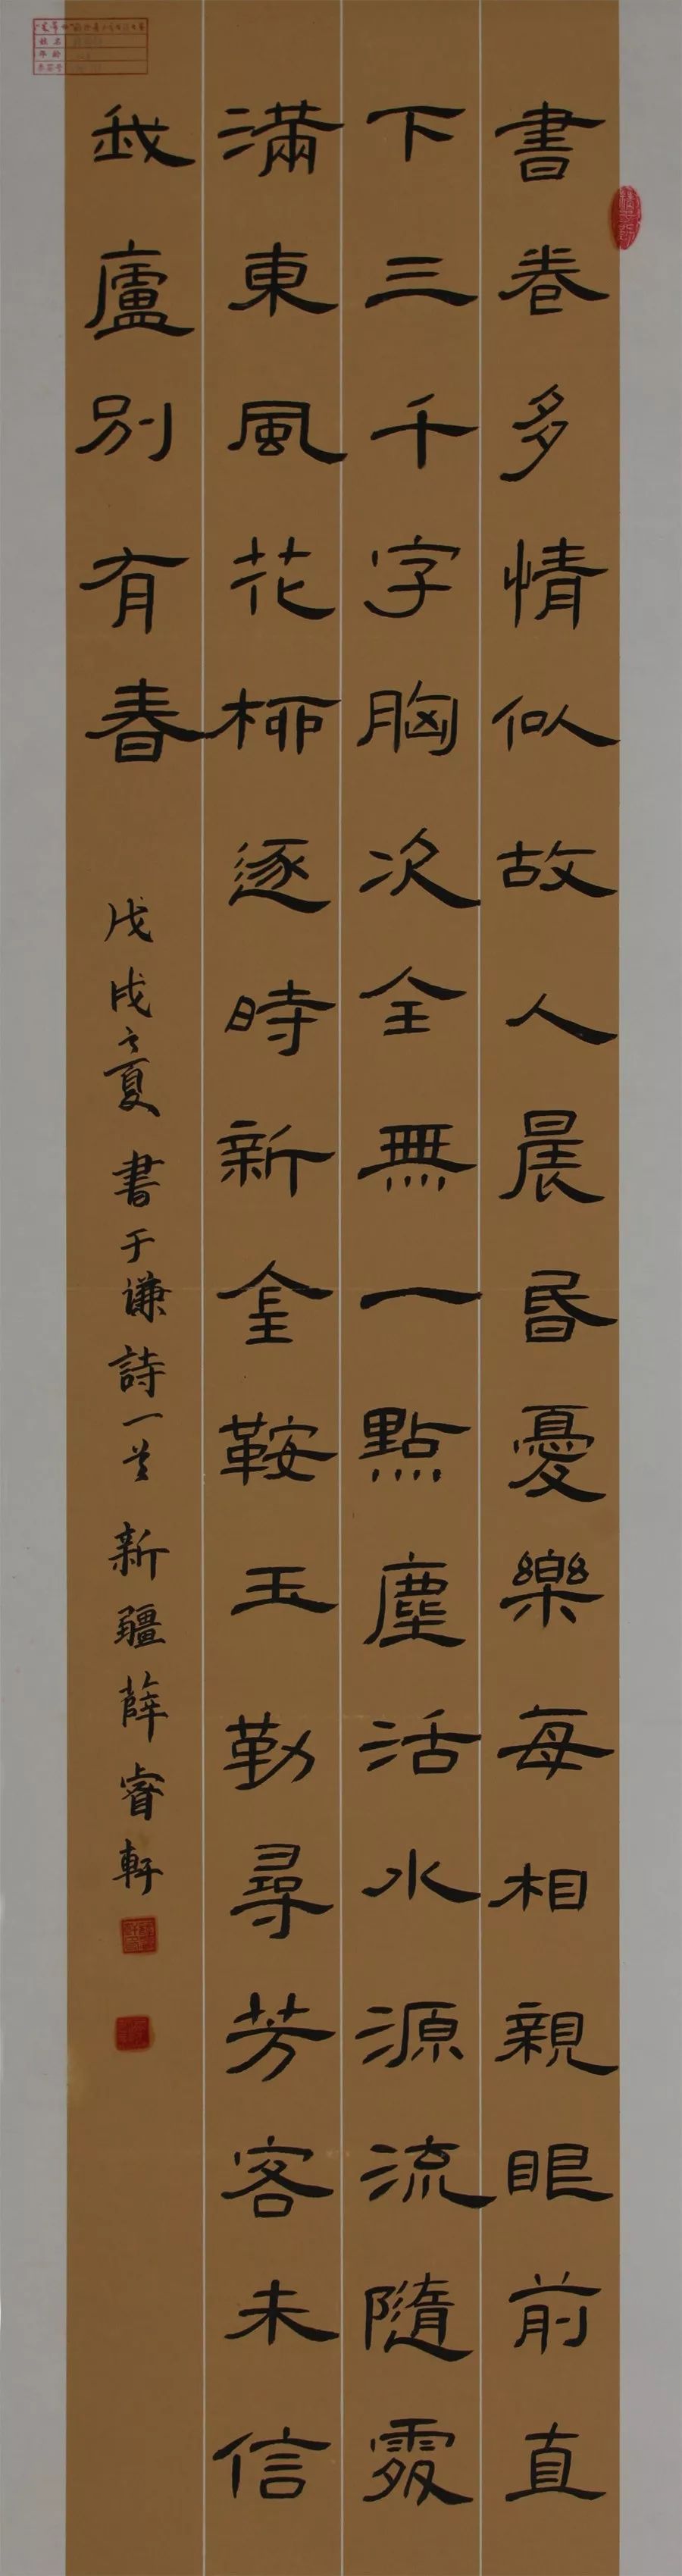 書卷多情似故人晨昏憂樂每相親眼前直
下三千字胸次全無一點塵活水源流隨處
滿東風花柳逐時新金鞍玉勒尋芳客未信
我廬別有春
戊戌之夏書于谦詩一首新疆薛睿軒